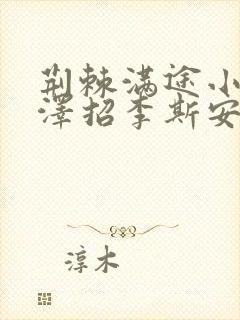 荆棘满途小
泽招李斯安
淳木